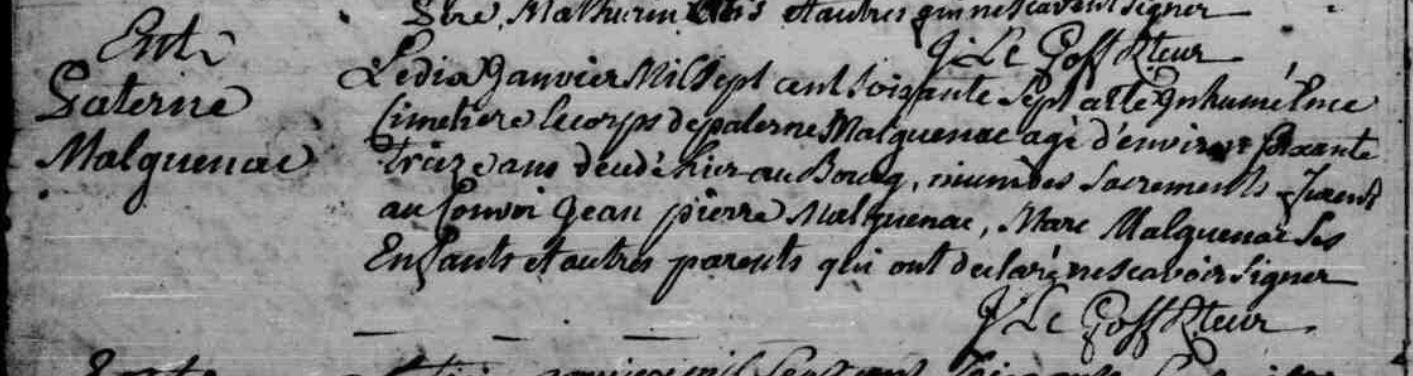 Mathurin et autres qui ne scavent signer
J. Le Goff Rteur
Entt
Paterne
Malguenac
Le dix Janvier Mil Sept cent soixante Sept a eté Inhumé en ce
Cimetiere le corps de paterne Malguenac agé d'environ soixante
treize ans decedé hier au Bourg, muni des Sacrements furent
au Convoi Jean pierre Malguenac, Marc Malguenac Ses
Enfants et autres parents qui ont declaré ne scavoir Signer
J. Le Goff Rteur